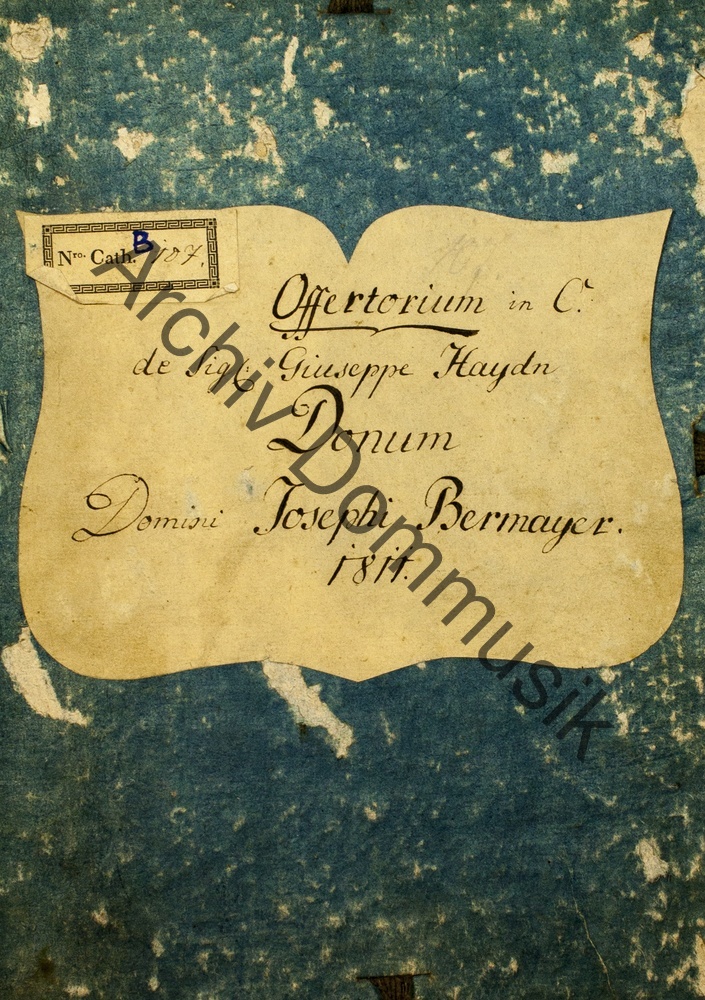 Nro. Cath. B 187.
Offertorium in C.
de Sigl: Giuseppe Haydn
Donum
Domini Josephi Bermayer.
1811.
Archiv Dommusik